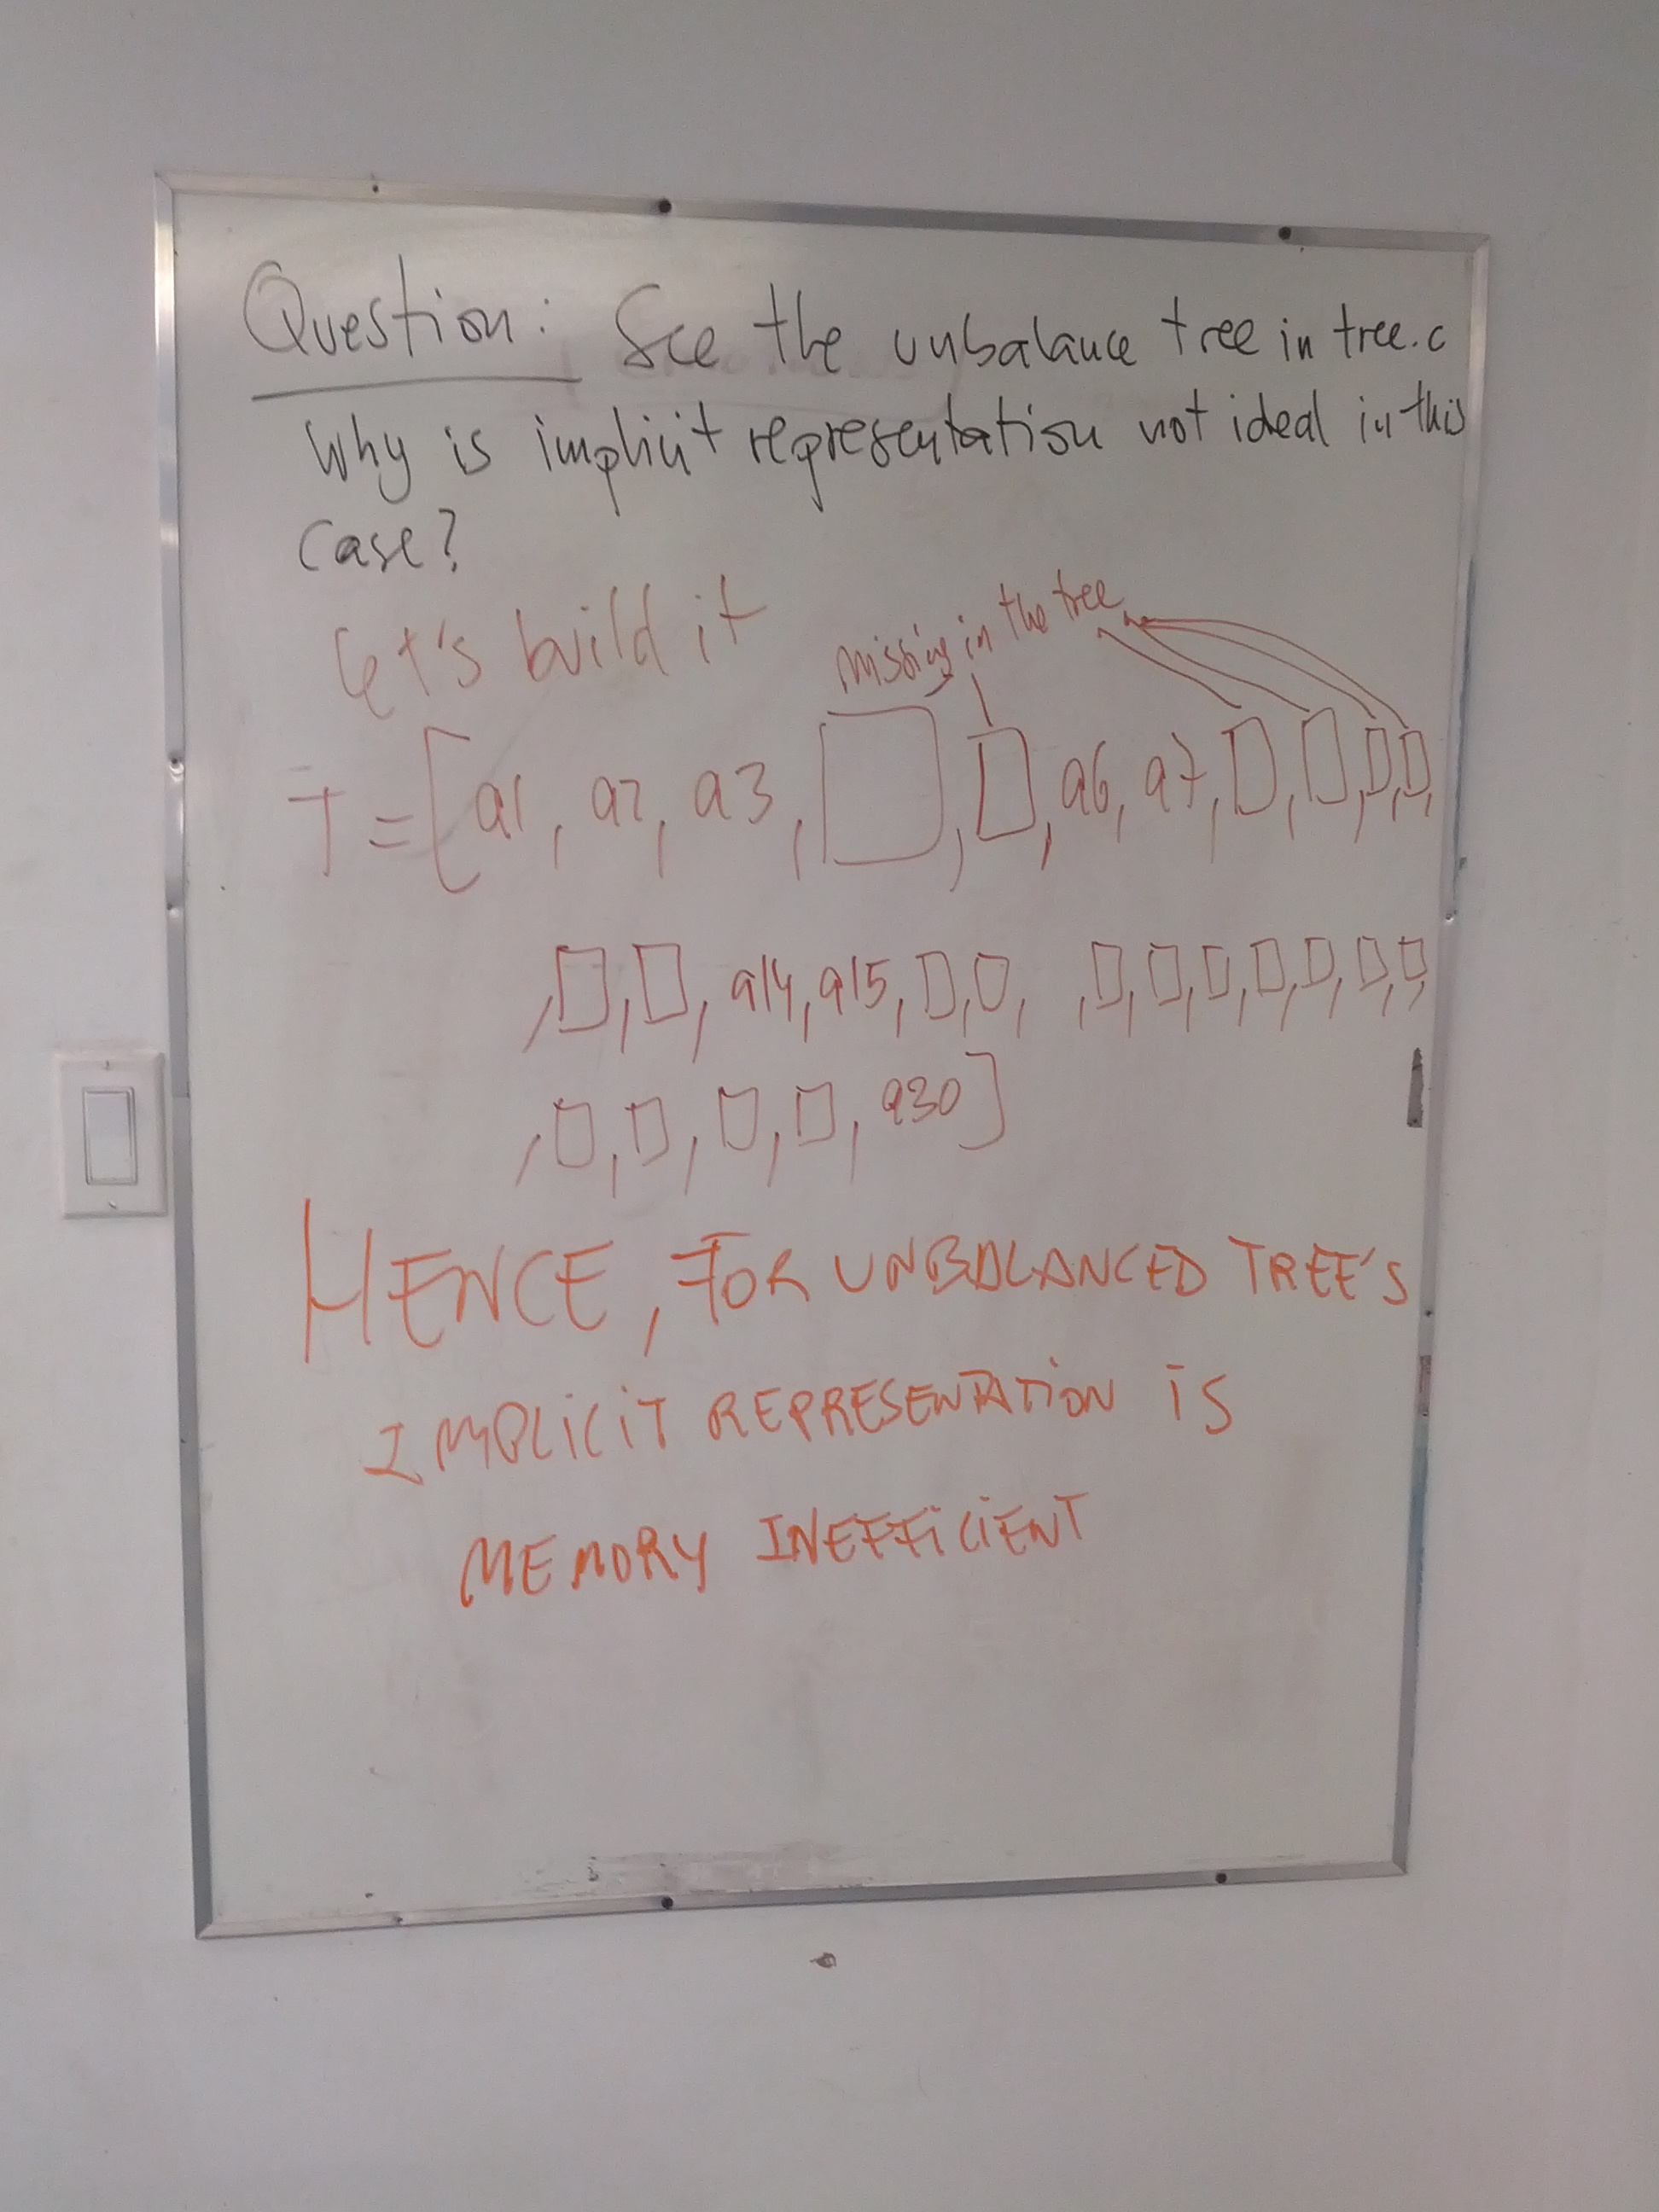 Question: See the unbalance tree in tree.c
Why is implicit representation not ideal in this
case?
Let's build it
missing in the tree
T = [a1, a2, a3, □, □, a6, a7, □, □, □, □,
, □, □, a14, a15, □, □, , □, □, □, □, □, □, □,
, □, □, □, □, a30]
HENCE, FOR UNBALANCED TREE'S
IMPLICIT REPRESENTATION IS
MEMORY INEFFICIENT